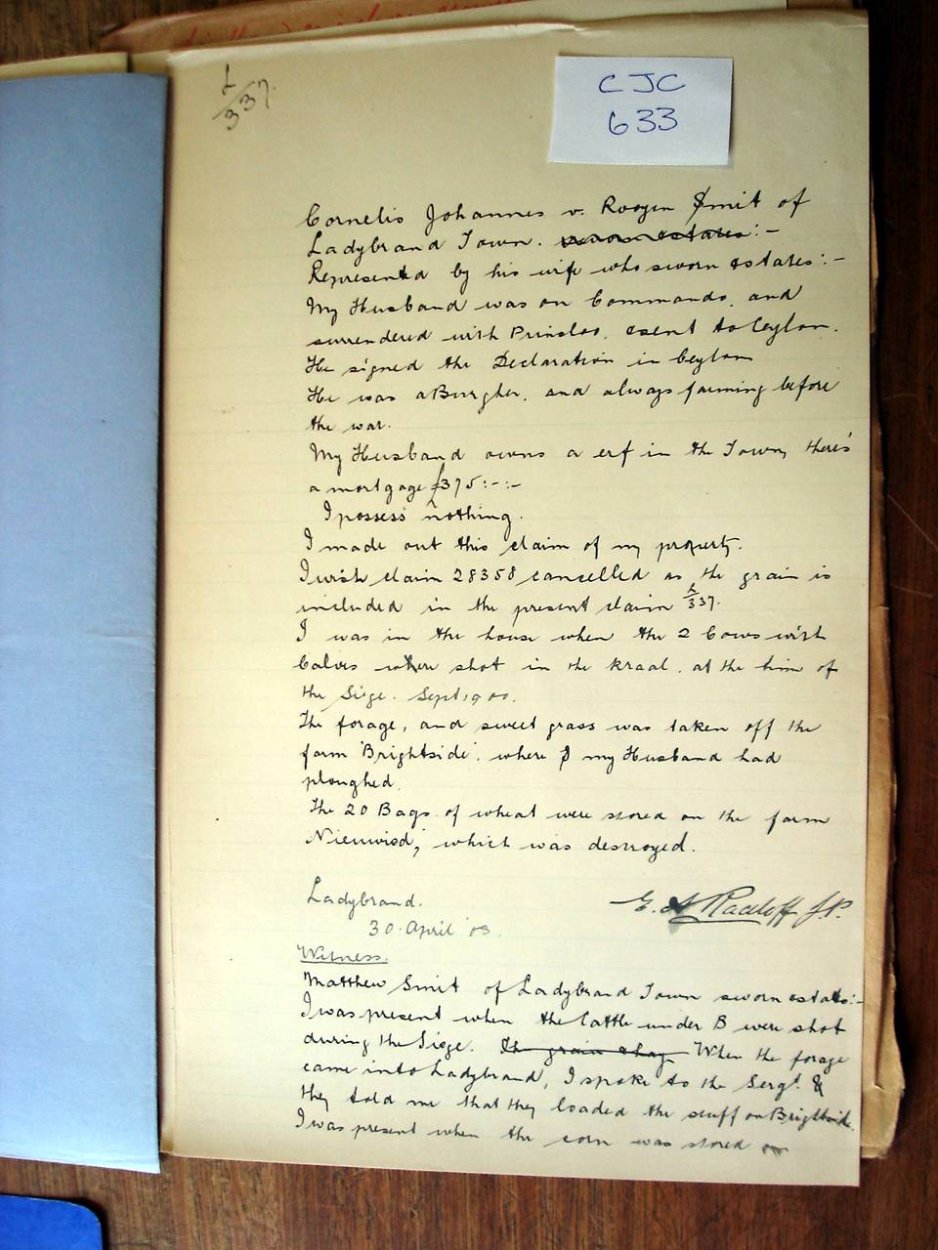 L/337.
CJC
633
Cornelis Johannes v. Rooyen Smit of
Ladybrand Town. sworn estates:-
Represented by his wife who sworn estates:-
My Husband was on Commando, and
surrendered with Prinsloo, & sent to Ceylon.
He signed the Declaration in Ceylon
He was a Burgher, and always farming before
the war.
My Husband owns a erf in the Town, there's
a mortgage £375:-:-
I possess nothing.
I made out this claim of my property.
I wish claim 28358 cancelled as the grain is
included in the present claim L/337.
I was in the house when the 2 Cows with
Calves where shot in the kraal, at the him of
the Siege. Sept 1900.
The forage, and sweet grass was taken off the
farm 'Brightside'. where my Husband had
ploughed.
The 20 Bags of wheat were stored on the farm
which was destroyed.
Ladybrand.
30 April '03.
E. A. Radloff J.P.
Witness.
Matthew Smit of Ladybrand Town sworn estates:-
I was present when the Cattle under B were shot
during the Siege. The grain & hay When the forage
came into Ladybrand, I spoke to the Sergt. &
they told me that they loaded the stuff on Brightside.
I was present when the corn was stored on